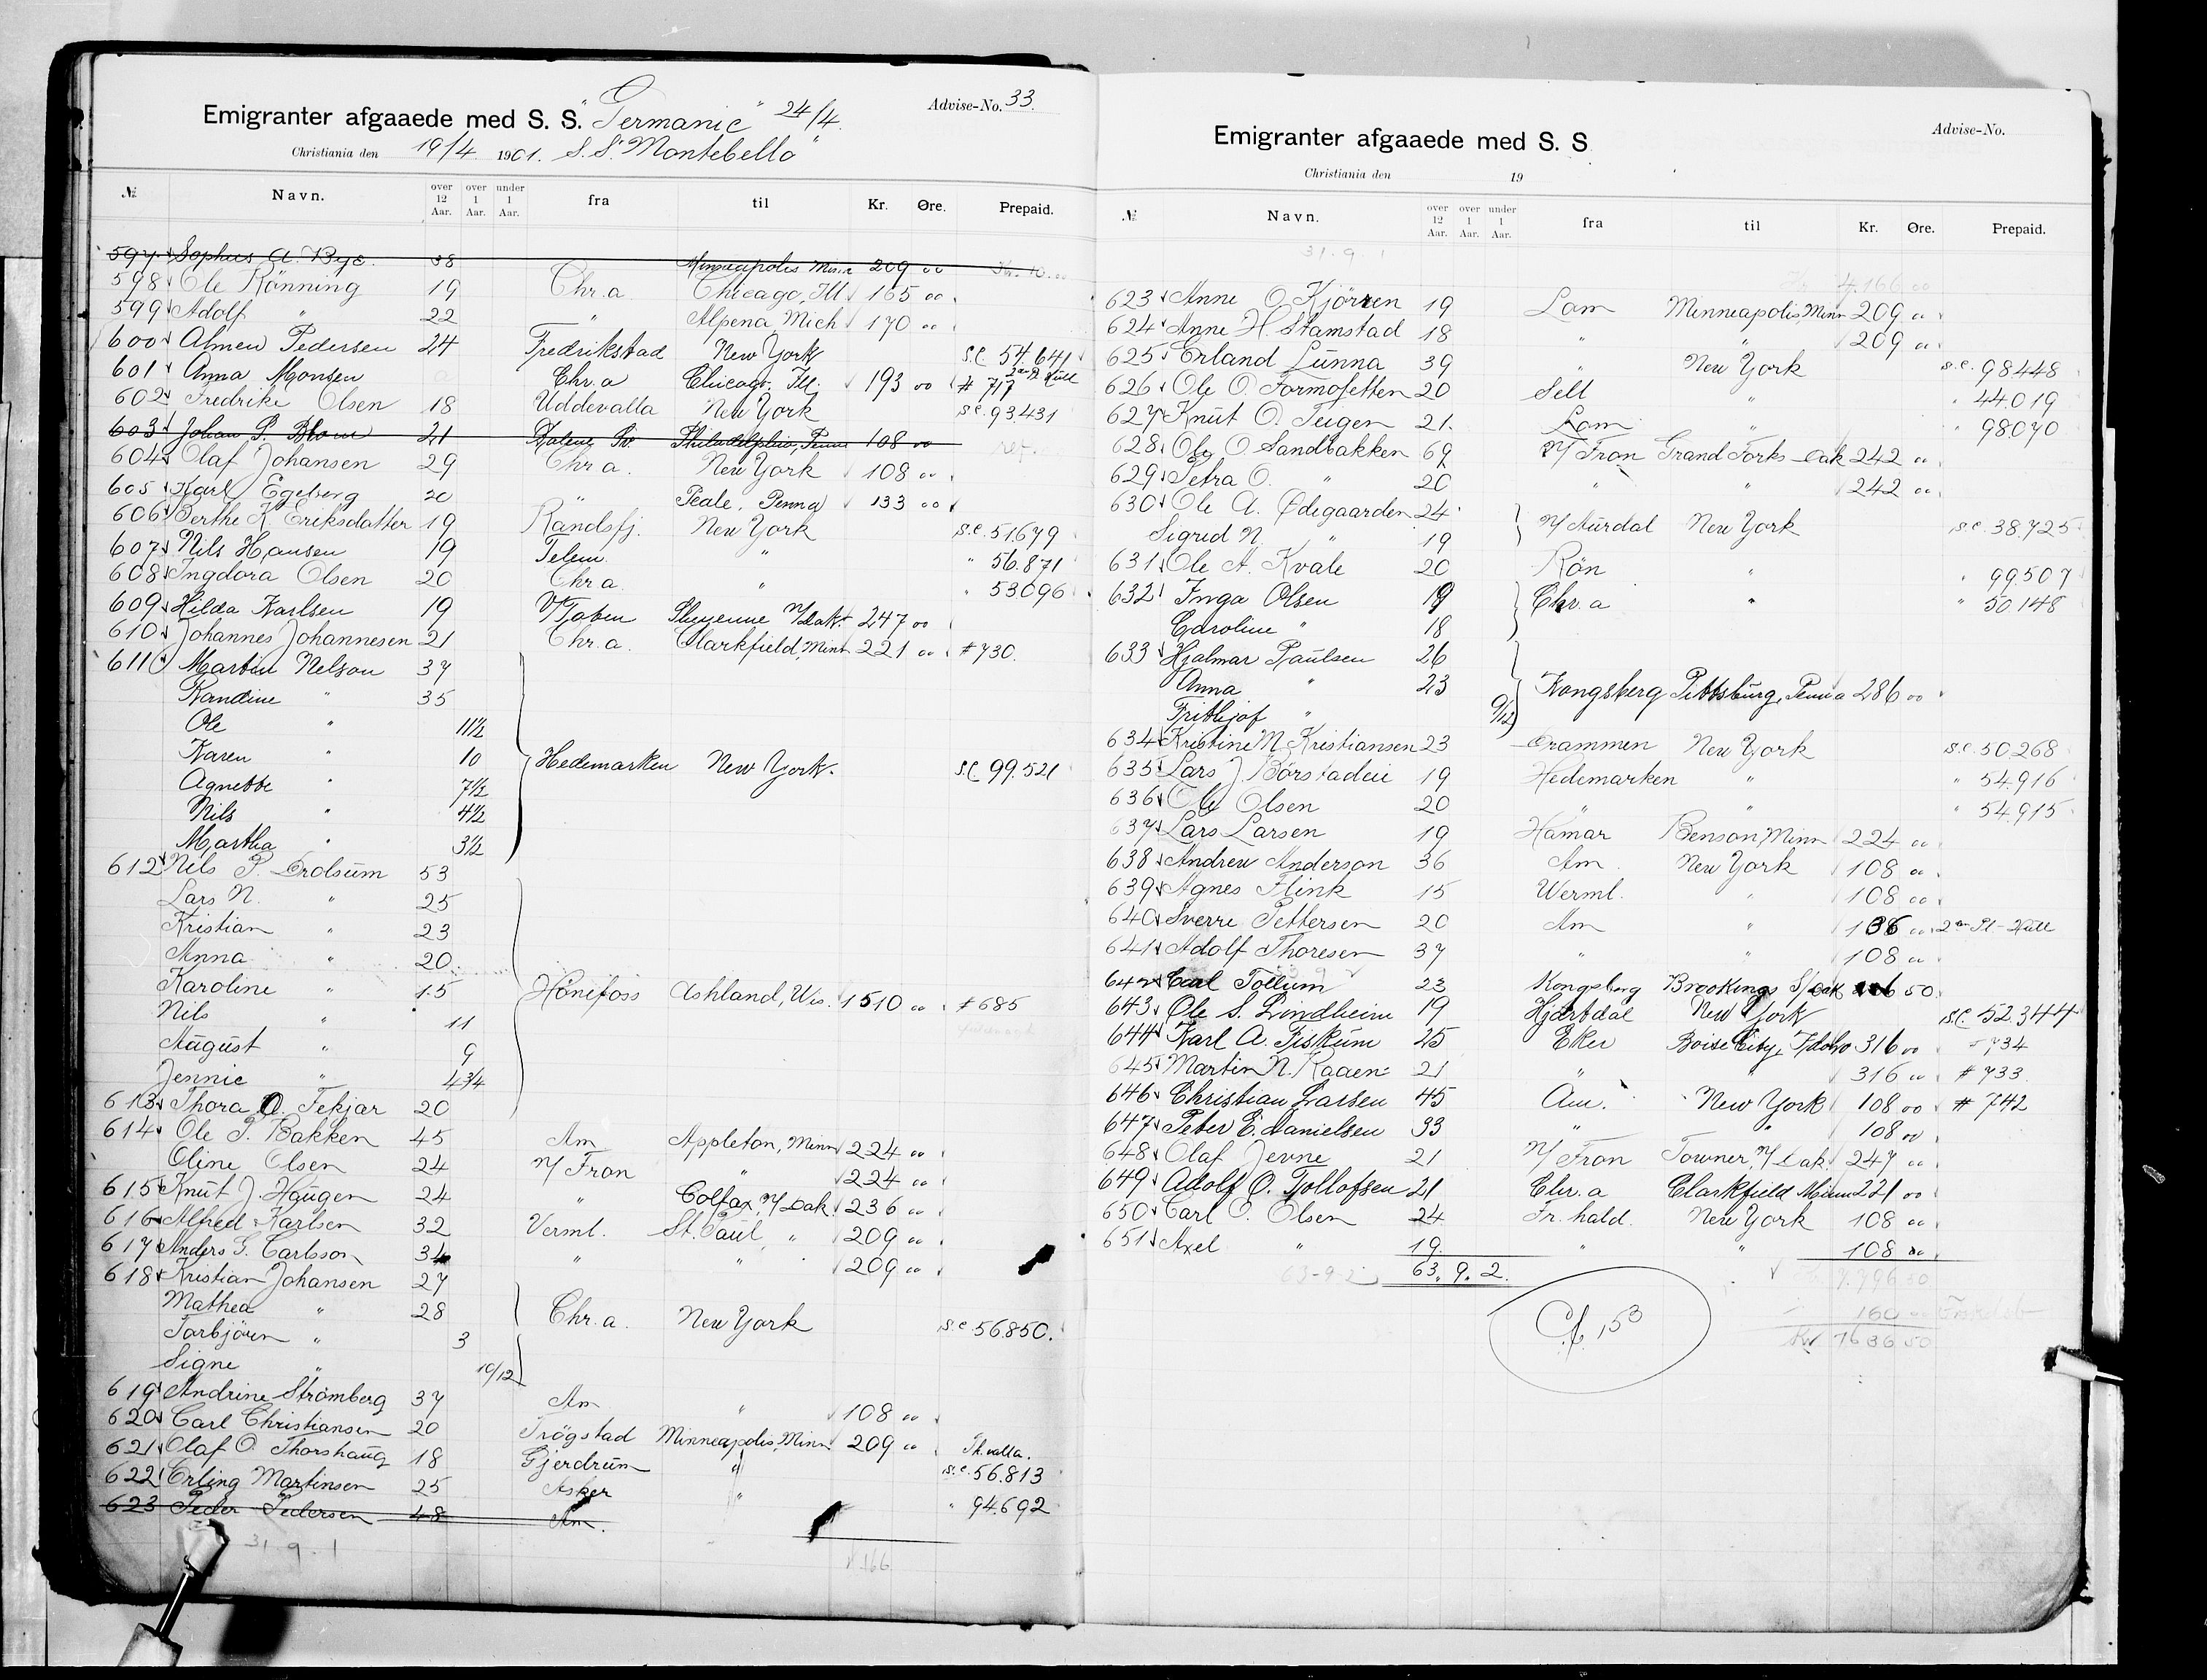 Emigranter afgaaede med S. S. "Germanic" 24/4. Advise-No. 33.
Christiania den 19/4 1901. S.S. "Montebello"
№ Navn. over 12 Aar. over 1 Aar. under 1 Aar. fra til Kr. Øre. Prepaid.
597 Sophus A. Bye. 38 Minneapolis Minn 209 00
598 Ole Rönning 19 Chr.a Chicago, Ill 165 00
599 Adolf " 22 " Alpena, Mich 170 00
600 Almen Pedersen 24 Fredrikstad New York S.C. 54.641
601 Anna Monsen Chr.a Chicago, Ill. 193 00 # 717
602 Fredrike Olsen 18 Uddevalla New York S.C. 93431
603 Johan P. Blom 21 Philadelphia, Penna 108 00 ref.
604 Olaf Johansen 29 Chr a. New York 108 00
605 Karl Egeberg 20 " Peale, Penna 133 00
606 Berthe K. Eriksdatter 19 Randsfj. New York S.C. 51.679
607 Nils Hansen 19 Telem. " " 56.871
608 Ingdora Olsen 20 Chr a. " " 53096
609 Hilda Karlsen 19 Sheyenne N/Dak. 247 00
610 Johannes Johannesen 21 Chr.a. Clarkfield, Minn 221 00 # 730.
611 Martin Nelson 37
Randine " 35
Ole " 11½
Karen " 10 Hedemarken New York. S.C. 99.521
Agnethe " 7½
Nils " 4½
Martha " 3½
612 Nils P. Drolsum 53
Lars N. " 25
Kristian " 23
Anna " 20
Karoline " 15 Hönefoss Ashland, Wis. 1510 00 # 685
Nils " 11
August " 9
Jennie " 4¾
613 Thora O. Fekjar 20
614 Ole P. Bakken 45 Am Appleton, Minn 224 00
Oline Olsen 24 N/Fron " 224 00
615 Knut J. Haugen 24 " Colfax, N/Dak. 236 00
616 Alfred Karlsen 32 Verml. St. Paul, " 209 00
617 Anders G. Carlsson 34 " " 209 00
618 Kristian Johansen 27
Mathea " 28 Chr. a. New York S.C 56850.
Torbjörn " 3
Signe " 10/12
619 Andrine Strömberg 37 Am " 108 00
620 Carl Christiansen 20 Trögstad Minneapolis, Minn 209 00
621 Olaf O. Thorshaug 18 Gjerdrum " S.C. 56.813
622 Erling Martinsen 25 Asker " " 94.692
623 Peder Pedersen 48 Am.
31. 9. 1
Emigranter afgaaede med S. S. Advise-No.
Christiania den 19
№ Navn. over 12 Aar. over 1 Aar. under 1 Aar. fra til Kr. Øre. Prepaid.
31. 9. 1
4.166 00
623 Anne O. Kjörren 19 Lom Minneapolis, Minn 209 00
624 Anne H. Stamstad 18 " " 209 00
625 Erland Lunna 39 " New York S.C. 98448
626 Ole O. Formosetten 20 Sell " " 44.019
627 Knut O. Teigen 21. Lom " " 98070
628 Ole O Sandbakken 69 N/Fron Grand Forks Dak 242 00
629 Petra O. " 20 " " 242 00
630 Ole A. Ødegaarden 24
Sigrid N. " 19 N/Aurdal New York S.C. 38.725
631 Ole A. Kvale 20 Rön " " 99.507
632 Inga Olsen 19 Chr. a " " 50148
Caroline " 18
633 Hjalmar Paulsen 26
Anna " 23 Kongsberg Pittsburg, Penna 286 00
Frithjof " 9/12
634 Kristine M. Kristiansen 23 Drammen New York S.C. 50.268
635 Lars J Börstadeie 19 Hedemarken " " 54.916
636 Ole Olsen 20 " " " 54.915
637 Lars Larsen 19 Hamar Benson, Minn 224 00
638 Andrew Anderson 36 Am. New York 108 00
639 Agnes Flink 15 Werml. " 108 00
640 Sverre Pettersen 20 Am " 136 00
641 Adolf Thoresen 37 " " 108 00
642 Carl Tollum 23 Kongsberg Brookings S/Dak 50
643 Ole S. Lindheim 19 Hjartdal New York S.C. 52.344
644 Karl A. Fiskum 25 Eker Boise City, Idaho 316 00 " 734
645 Martin N. Raaen 21 " " 316 00 # 733
646 Christian Larsen 45 Am. New York 108 00 # 742
647 Peter E. Danielsen 33 " " 108 00
648 Olaf Jevne 21 N/Fron Towner, N/Dak. 247 00
649 Adolf O. Tollofsen 21 Chr. a Clarkfield Minn 221 00
650 Carl O. Olsen 24 Fr. hald. New York 108 00
651 Axel " 19. " " 108 00
63-9-2 63. 9. 2. 7.796 50
160
Kr 7636 50